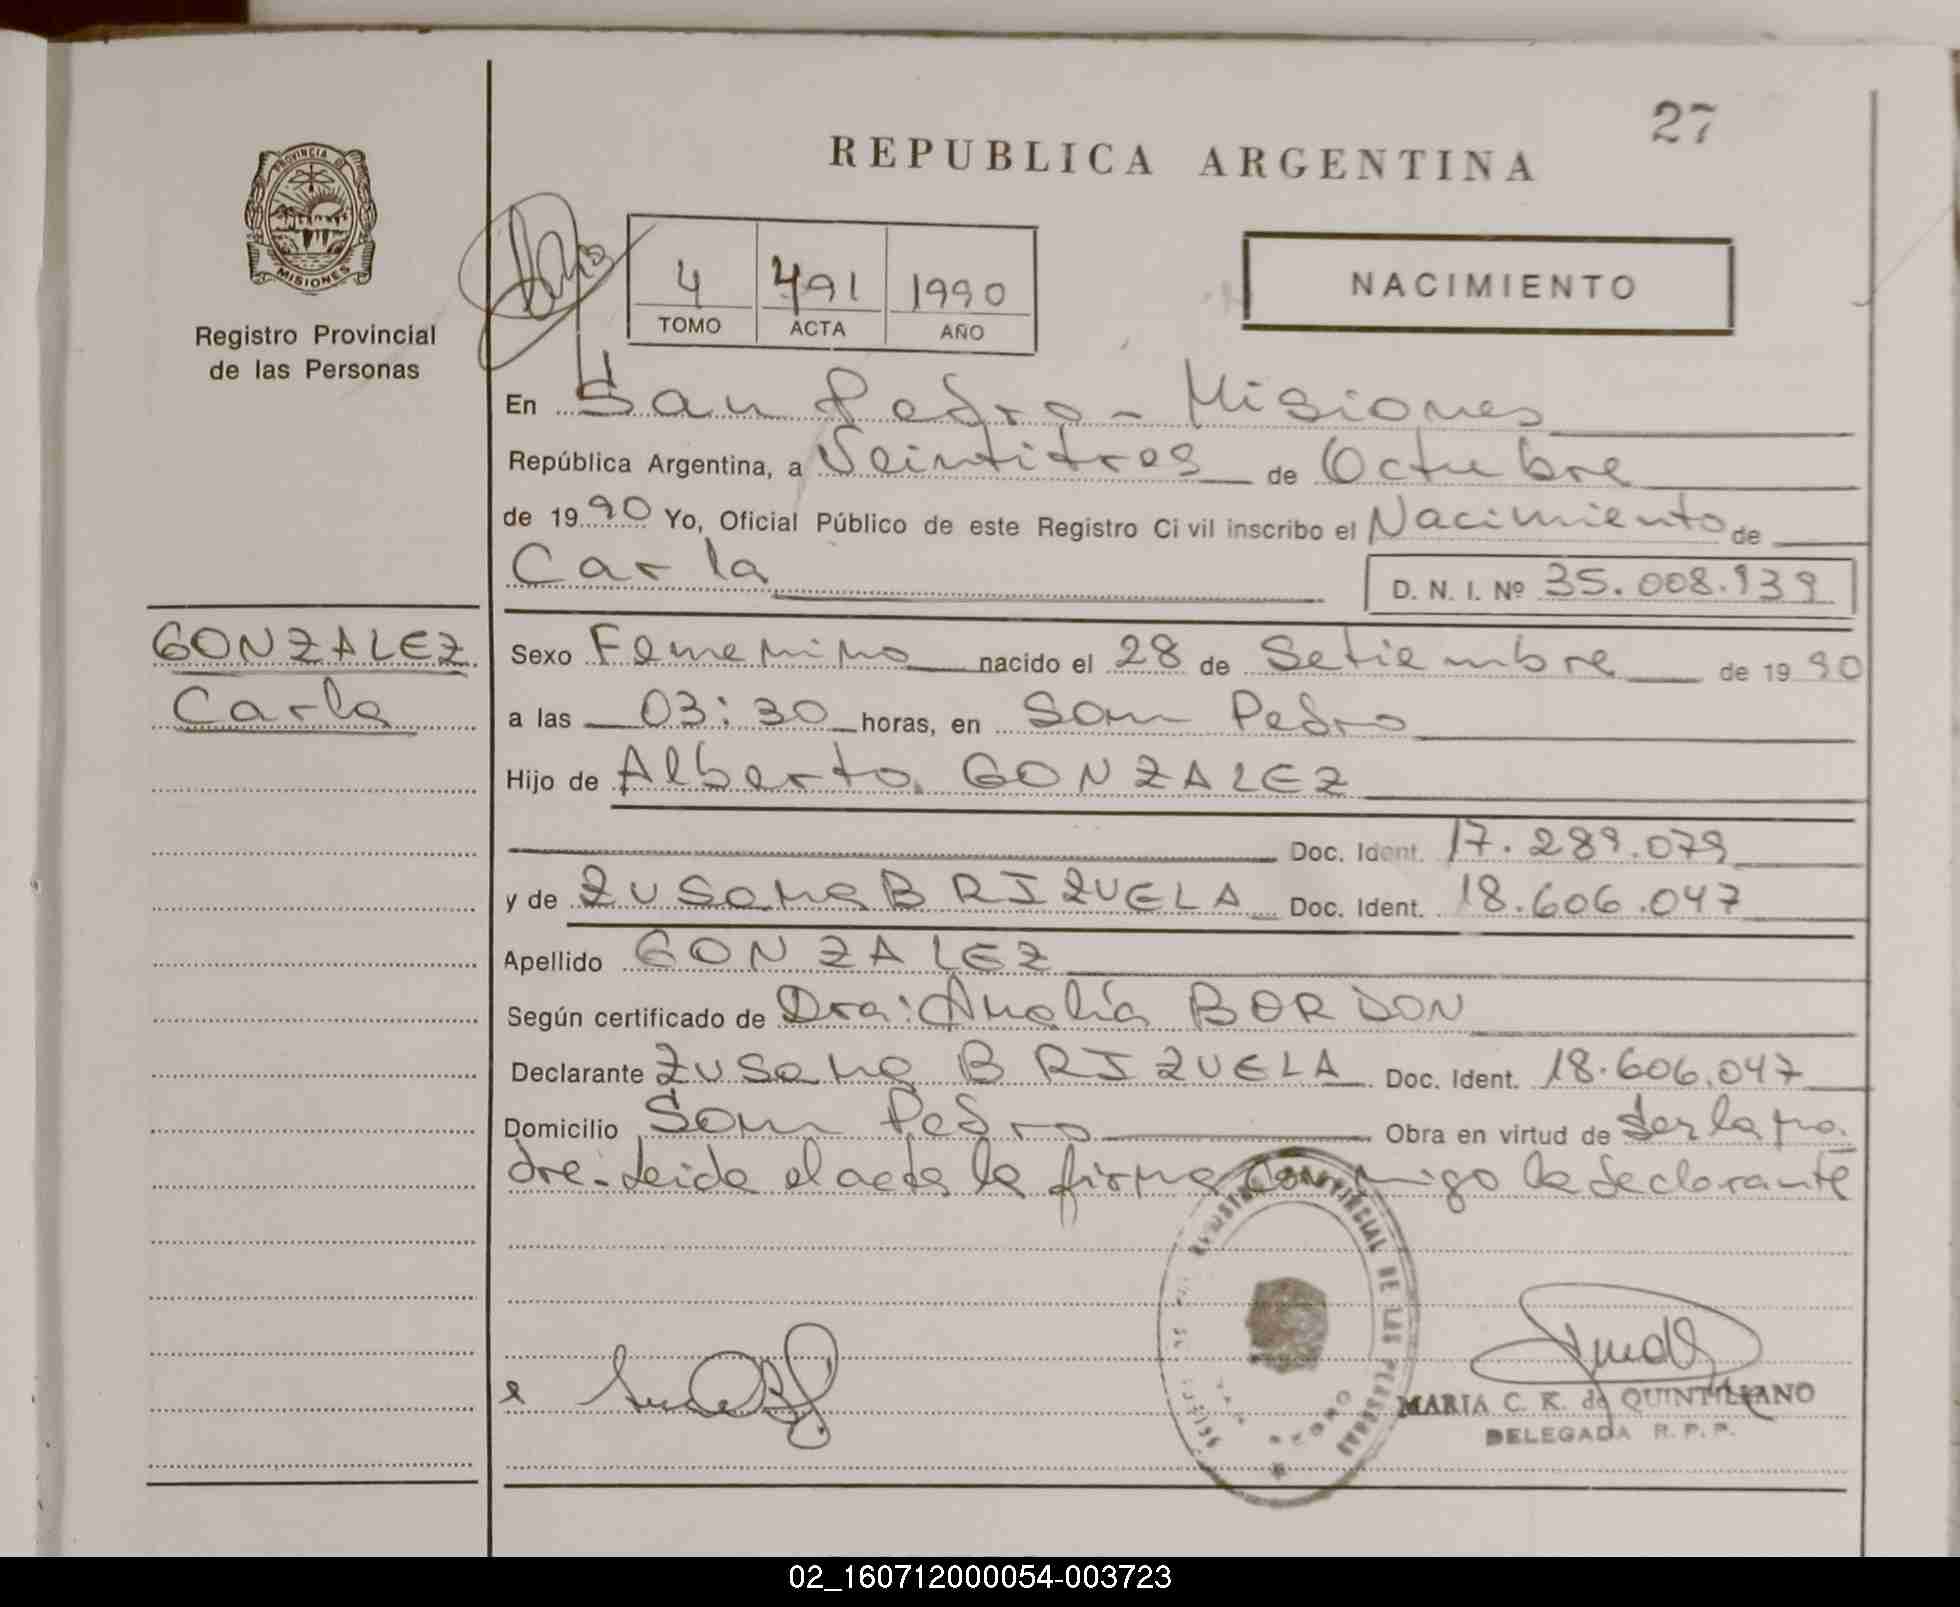 27
REPUBLICA ARGENTINA
PROVINCIA D
MISIONES
Registro Provincial
de las Personas
4 491 1990
TOMO ACTA AÑO
NACIMIENTO
En San Pedro - Misiones
República Argentina, a Veintitres de Octubre
de 1990 Yo, Oficial Público de este Registro Civil inscribo el Nacimiento de
Carla
D. N. I. Nº 35.008.939
GONZALEZ
Carla
Sexo Femenino nacido el 28 de Setiembre de 1990
a las 03:30 horas, en San Pedro
Hijo de Alberto GONZALEZ
Doc. Ident. 17.289.079
y de Zusana BRIZUELA Doc. Ident. 18.606.047
Apellido GONZALEZ
Según certificado de Dra: Analía BORDON
Declarante Zusana BRIZUELA Doc. Ident. 18.606.047
Domicilio San Pedro Obra en virtud de ser la ma-
dre - Leida el acta la firma conmigo la declarante
REGISTRO PROVINCIAL DE LAS PERSONAS
MARIA C. K. de QUINTILIANO
DELEGADA R. P. P.
02_160712000054-003723